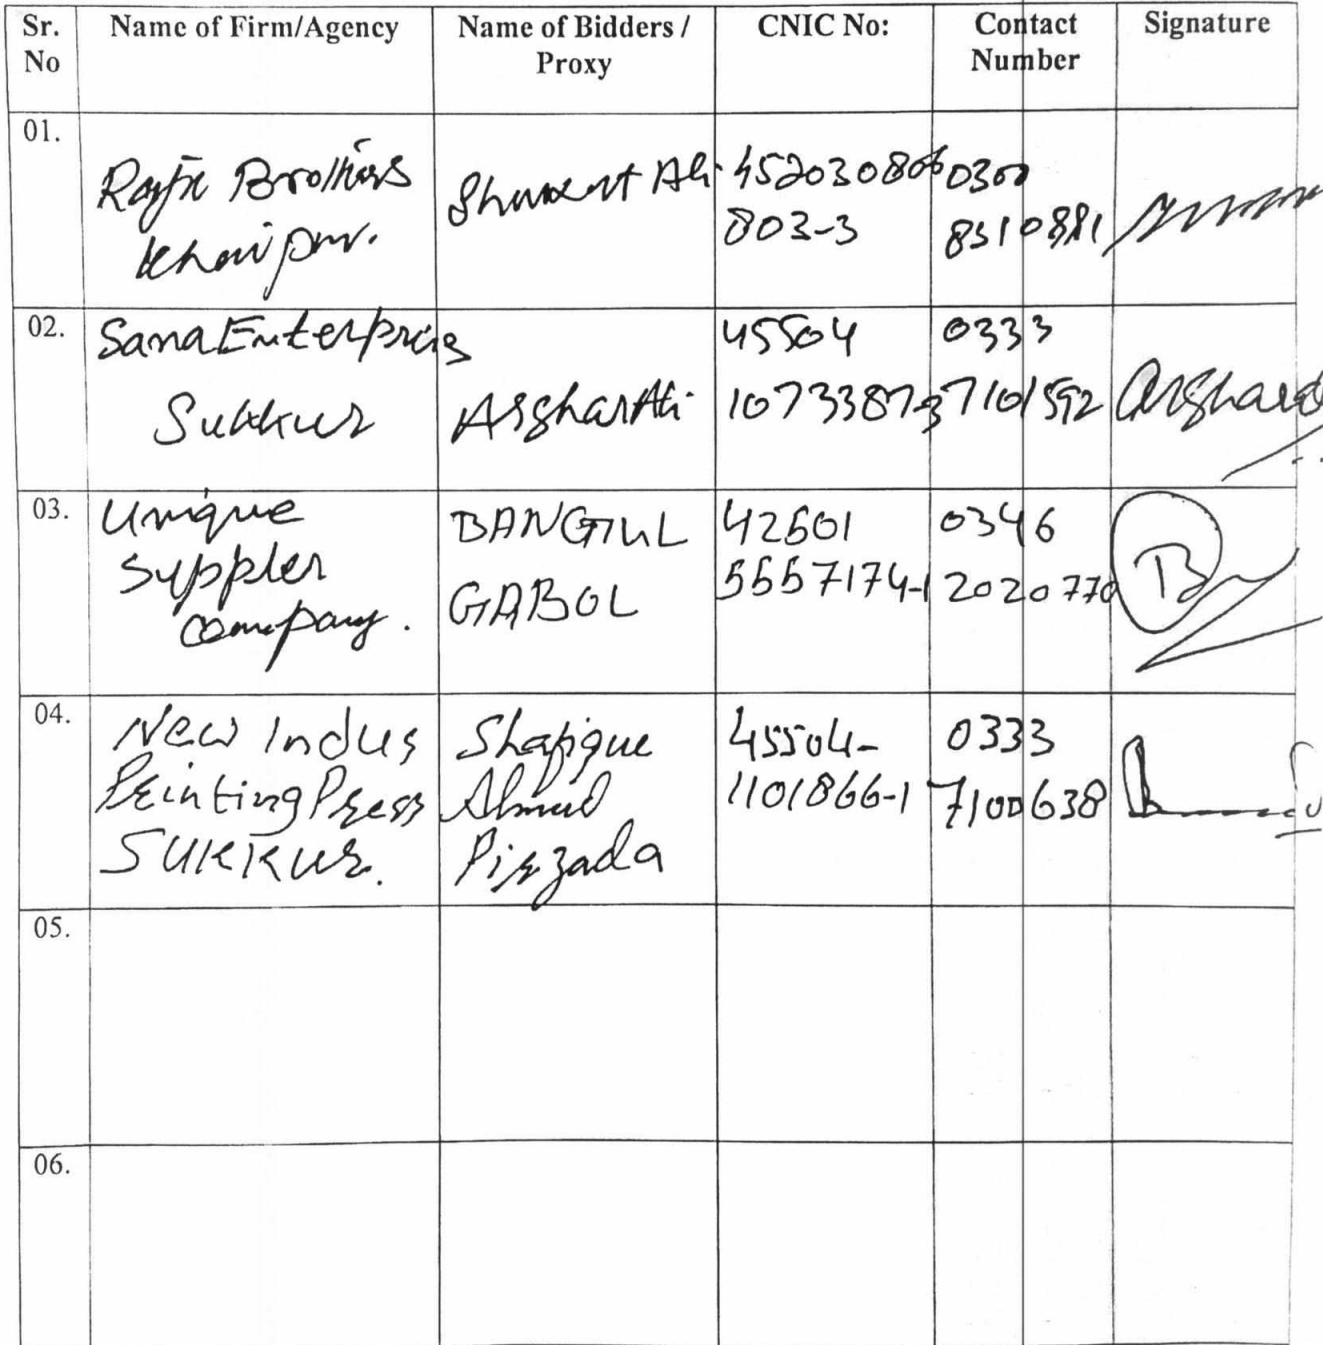 Sr. No
Name of Firm/Agency
Name of Bidders / Proxy
CNIC No:
Contact Number
Signature
01.
Brothers
Khairpur.
Ali
803-3
0300
02.
Sana Enterprises
Sukkur
Asghar Ali
45504
0333
7101592
03.
Unique
Suppler
company.
BANGUL
GABOL
0346
2020770
B
04.
New Indus
Printing Press
SUKKUR.
Shafique
Ahmed
Pirzada
45504-
1101866-1
0333
7100638
05.
06.